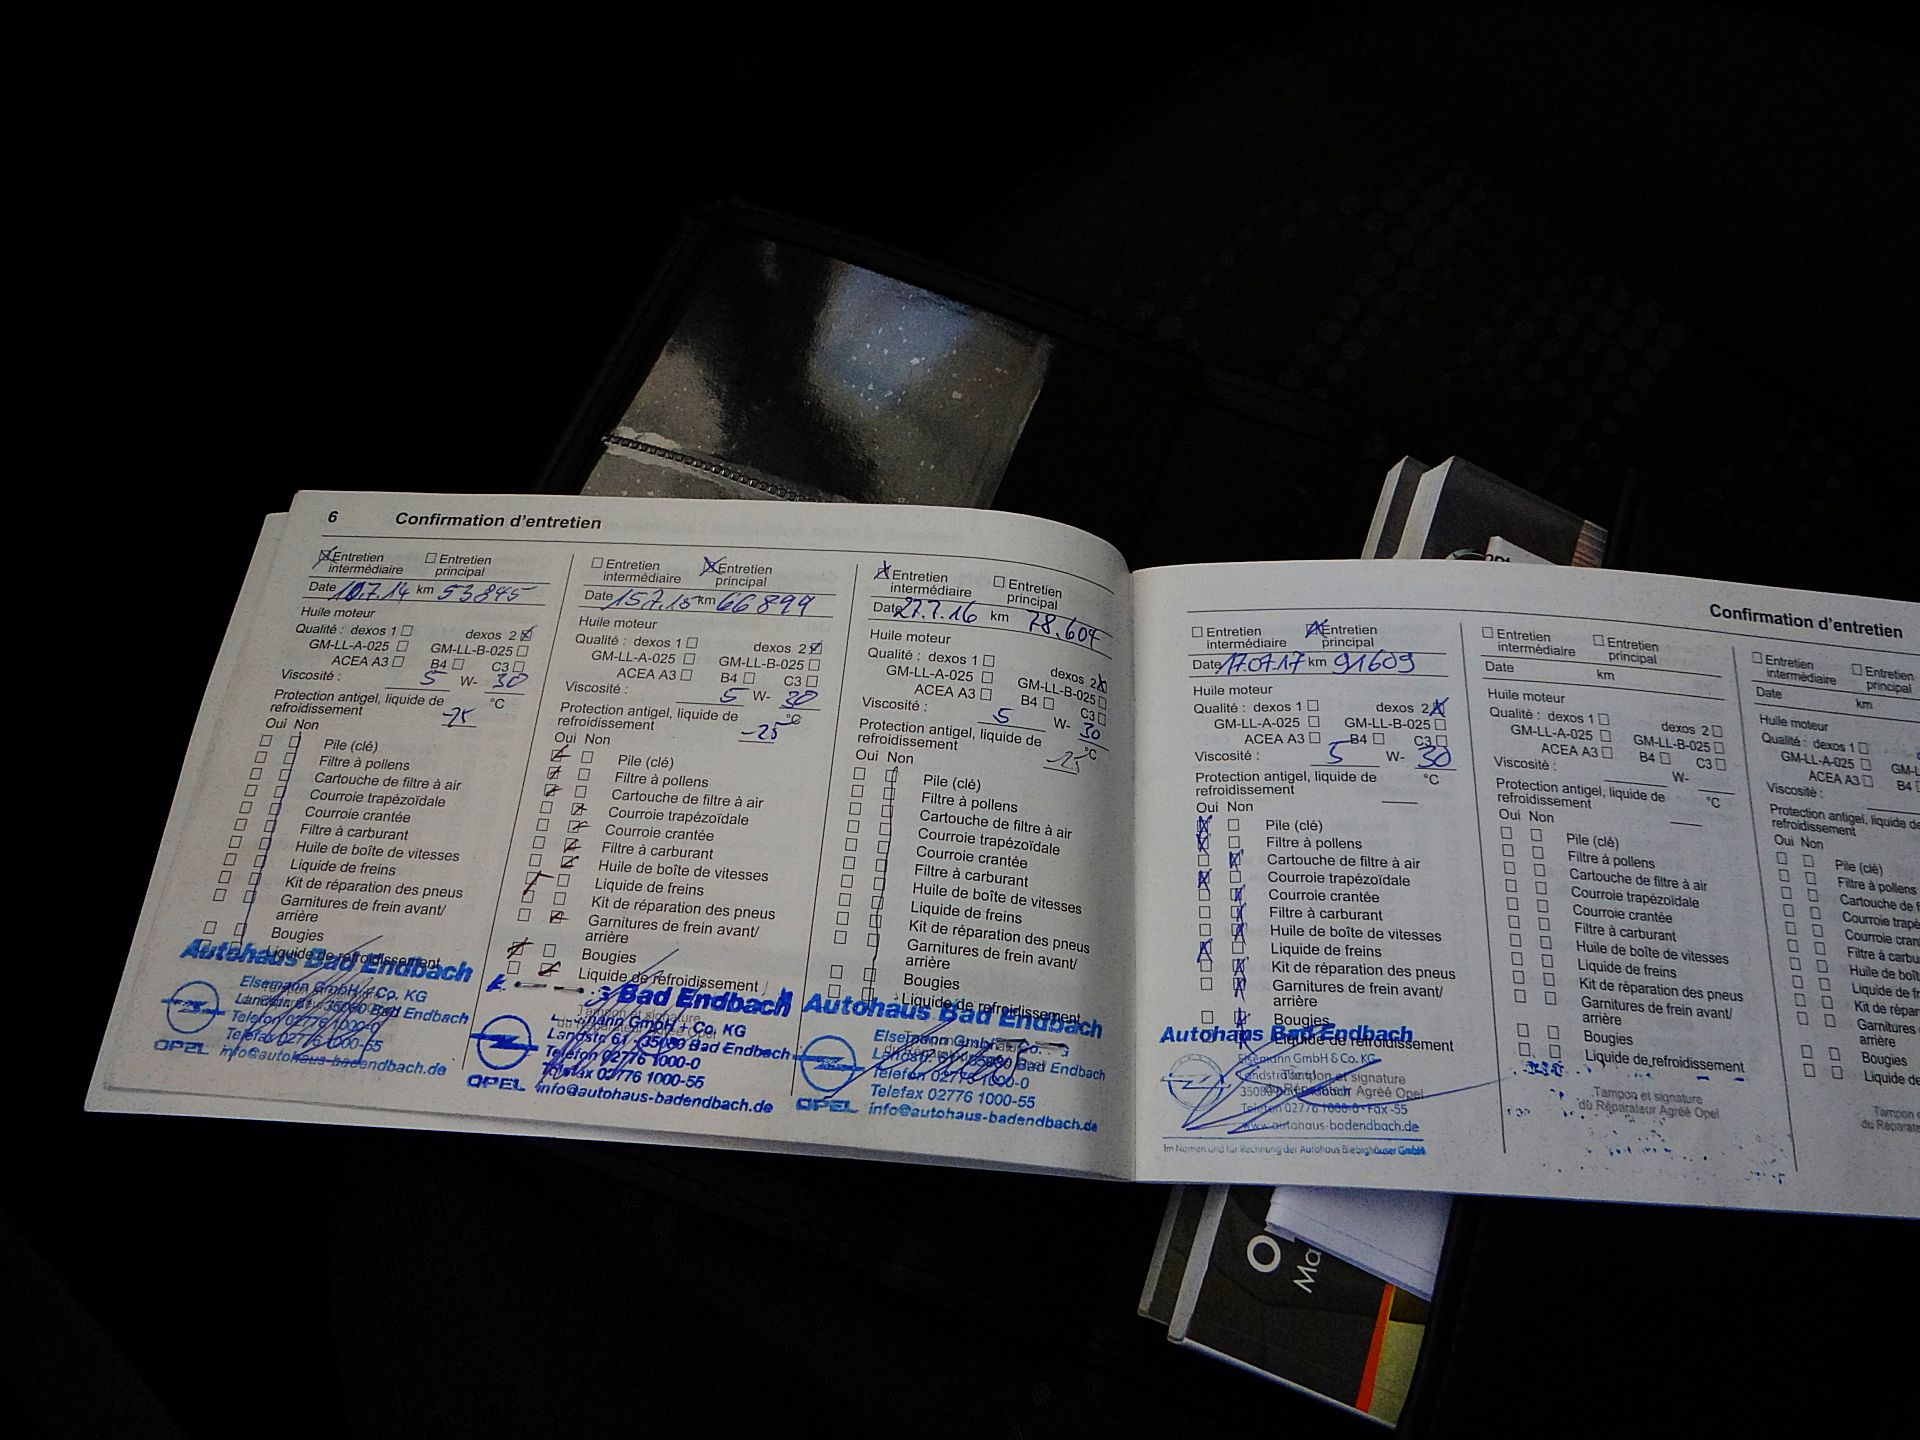 6 Confirmation d'entretien
Entretien intermédiaire Entretien principal
Date 10.7.14 km 53845
Huile moteur
Qualité : dexos 1 dexos 2
GM-LL-A-025 GM-LL-B-025
ACEA A3 B4 C3
Viscosité : 5 W- 30
Protection antigel, liquide de
refroidissement -25 °C
Oui Non
Pile (clé)
Filtre à pollens
Cartouche de filtre à air
Courroie trapézoïdale
Courroie crantée
Filtre à carburant
Huile de boîte de vitesses
Liquide de freins
Kit de réparation des pneus
Garnitures de frein avant/
arrière
Bougies
Liquide de refroidissement
Autohaus Bad Endbach
Elsemann GmbH + Co. KG
Landstr. 61 · 35080 Bad Endbach
Telefon 02776 1000-0
Telefax 02776 1000-55
OPEL info@autohaus-badendbach.de
Entretien intermédiaire Entretien principal
Date 15.7.15 km 66899
Huile moteur
Qualité : dexos 1 dexos 2
GM-LL-A-025 GM-LL-B-025
ACEA A3 B4 C3
Viscosité : 5 W- 30
Protection antigel, liquide de
refroidissement -25 °C
Oui Non
Pile (clé)
Filtre à pollens
Cartouche de filtre à air
Courroie trapézoïdale
Courroie crantée
Filtre à carburant
Huile de boîte de vitesses
Liquide de freins
Kit de réparation des pneus
Garnitures de frein avant/
arrière
Bougies
Liquide de refroidissement
Bad Endbach
Tampon et signature
du Réparateur Agréé Opel
GmbH + Co. KG
Landstr. 61 · 35080 Bad Endbach
Telefon 02776 1000-0
Telefax 02776 1000-55
OPEL info@autohaus-badendbach.de
Entretien intermédiaire Entretien principal
Date 27.7.16 km 78.604
Huile moteur
Qualité : dexos 1 dexos 2
GM-LL-A-025 GM-LL-B-025
ACEA A3 B4 C3
Viscosité : 5 W- 30
Protection antigel, liquide de
refroidissement -25 °C
Oui Non
Pile (clé)
Filtre à pollens
Cartouche de filtre à air
Courroie trapézoïdale
Courroie crantée
Filtre à carburant
Huile de boîte de vitesses
Liquide de freins
Kit de réparation des pneus
Garnitures de frein avant/
arrière
Bougies
Liquide de refroidissement
Autohaus Bad Endbach
Elsemann GmbH Co.
Landstr. 35080 Bad Endbach
Telefon 02776 1000-0
Telefax 02776 1000-55
OPEL info@autohaus-badendbach.de
Confirmation d'entretien
Entretien intermédiaire Entretien principal
Date 17.07.17 km 91609
Huile moteur
Qualité : dexos 1 dexos 2
GM-LL-A-025 GM-LL-B-025
ACEA A3 B4 C3
Viscosité : 5 W- 30
Protection antigel, liquide de
refroidissement °C
Oui Non
Pile (clé)
Filtre à pollens
Cartouche de filtre à air
Courroie trapézoïdale
Courroie crantée
Filtre à carburant
Huile de boîte de vitesses
Liquide de freins
Kit de réparation des pneus
Garnitures de frein avant/
arrière
Bougies
Liquide de refroidissement
Autohaus Bad Endbach
Elsemann GmbH & Co. KG
Tampon et signature
du Réparateur Agréé Opel
Telefon 02776 1000-0 · Fax -55
www.autohaus-badendbach.de
Im Namen und für Rechnung der Autohaus Biebighäuser GmbH
Entretien intermédiaire Entretien principal
Date km
Huile moteur
Qualité : dexos 1 dexos 2
GM-LL-A-025 GM-LL-B-025
ACEA A3 B4 C3
Viscosité : W-
Protection antigel, liquide de
refroidissement °C
Oui Non
Pile (clé)
Filtre à pollens
Cartouche de filtre à air
Courroie trapézoïdale
Courroie crantée
Filtre à carburant
Huile de boîte de vitesses
Liquide de freins
Kit de réparation des pneus
Garnitures de frein avant/
arrière
Bougies
Liquide de refroidissement
Tampon et signature
du Réparateur Agréé Opel
Entretien intermédiaire Entretien principal
Date km
Huile moteur
Qualité : dexos 1
GM-LL-A-025
ACEA A3 B4
Viscosité :
Protection antigel, liquide de
refroidissement
Oui Non
Pile (clé)
Filtre à pollens
Cartouche de
Courroie
Courroie
Filtre à
Huile de
Liquide de
Kit de
Garnitures
arrière
Bougies
Liquide de
Tampon
du
O
Ma